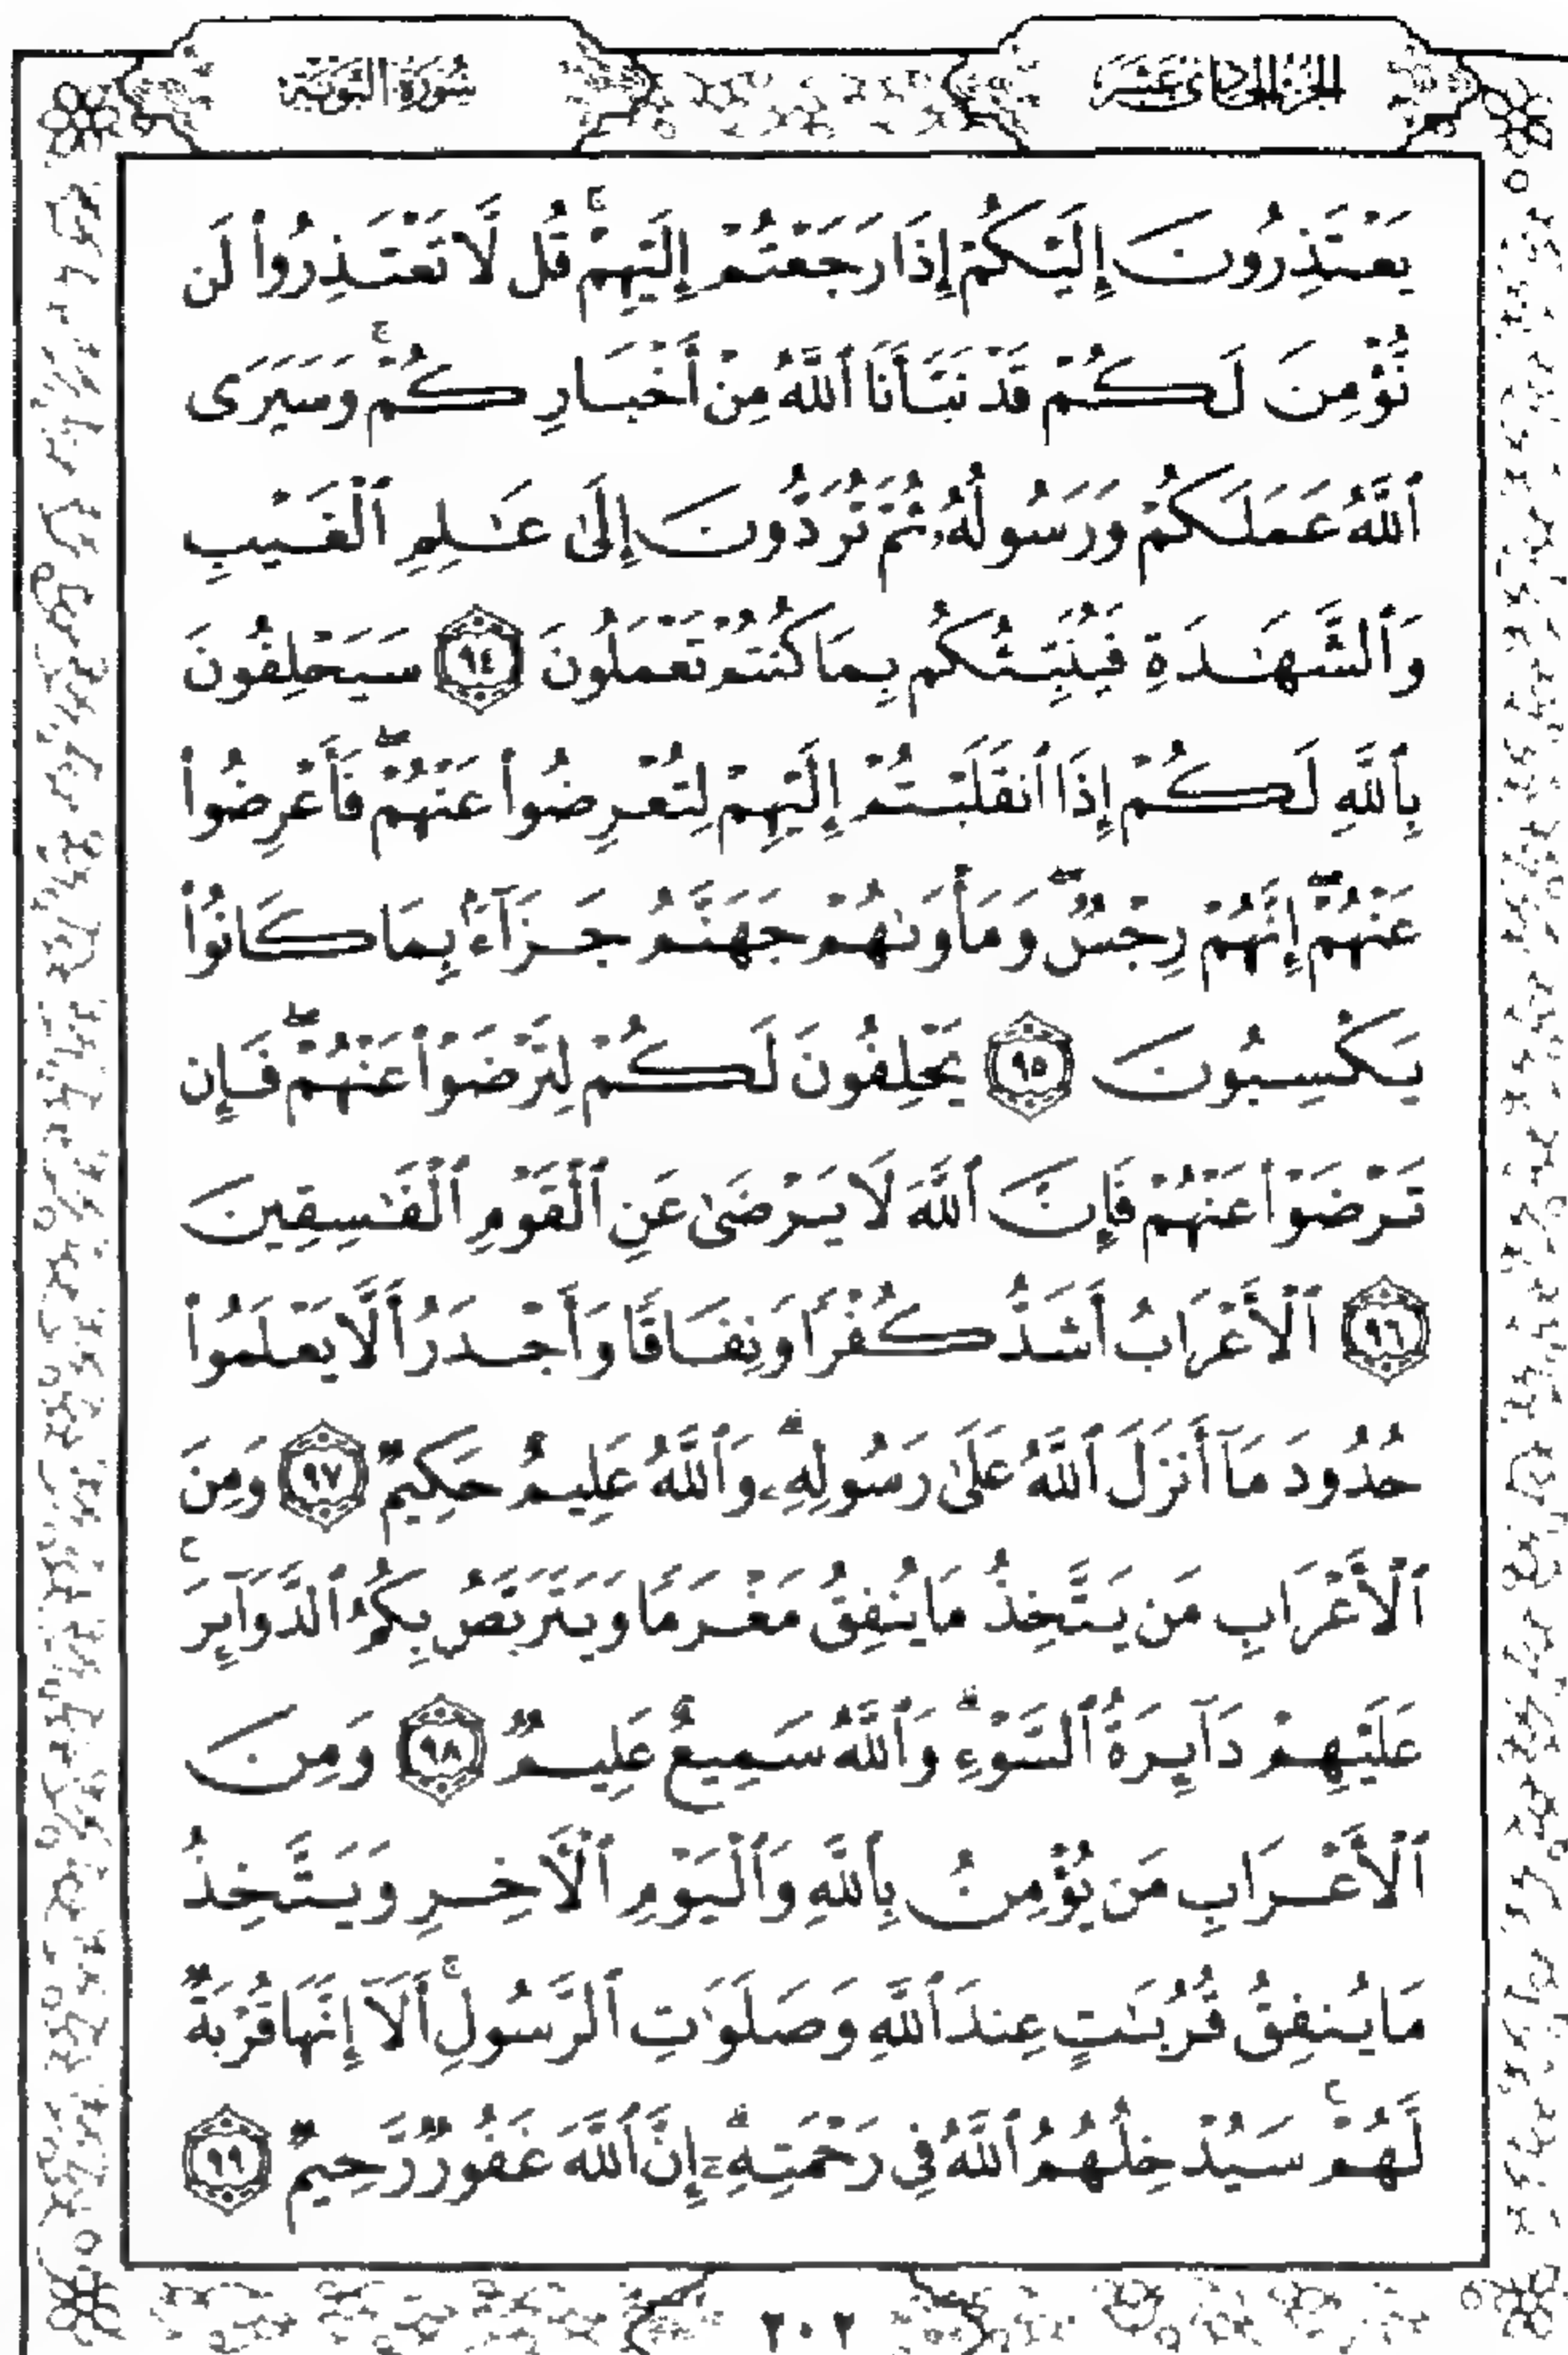 الجزء الحادي عشر
سورة التوبة
يَعْتَذِرُونَ إِلَيْكُمْ إِذَا رَجَعْتُمْ إِلَيْهِمْ ۚ قُل لَّا تَعْتَذِرُوا۟ لَن
نُّؤْمِنَ لَكُمْ قَدْ نَبَّأَنَا ٱللَّهُ مِنْ أَخْبَارِكُمْ ۚ وَسَيَرَى
ٱللَّهُ عَمَلَكُمْ وَرَسُولُهُۥ ثُمَّ تُرَدُّونَ إِلَىٰ عَـٰلِمِ ٱلْغَيْبِ
وَٱلشَّهَـٰدَةِ فَيُنَبِّئُكُم بِمَا كُنتُمْ تَعْمَلُونَ ﴿٩٤﴾ سَيَحْلِفُونَ
بِٱللَّهِ لَكُمْ إِذَا ٱنقَلَبْتُمْ إِلَيْهِمْ لِتُعْرِضُوا۟ عَنْهُمْ ۖ فَأَعْرِضُوا۟
عَنْهُمْ ۖ إِنَّهُمْ رِجْسٌ ۖ وَمَأْوَىٰهُمْ جَهَنَّمُ جَزَآءًۢ بِمَا كَانُوا۟
يَكْسِبُونَ ﴿٩٥﴾ يَحْلِفُونَ لَكُمْ لِتَرْضَوْا۟ عَنْهُمْ ۖ فَإِن
تَرْضَوْا۟ عَنْهُمْ فَإِنَّ ٱللَّهَ لَا يَرْضَىٰ عَنِ ٱلْقَوْمِ ٱلْفَـٰسِقِينَ
﴿٩٦﴾ ٱلْأَعْرَابُ أَشَدُّ كُفْرًا وَنِفَاقًا وَأَجْدَرُ أَلَّا يَعْلَمُوا۟
حُدُودَ مَآ أَنزَلَ ٱللَّهُ عَلَىٰ رَسُولِهِۦ ۗ وَٱللَّهُ عَلِيمٌ حَكِيمٌ ﴿٩٧﴾ وَمِنَ
ٱلْأَعْرَابِ مَن يَتَّخِذُ مَا يُنفِقُ مَغْرَمًا وَيَتَرَبَّصُ بِكُمُ ٱلدَّوَآئِرَ ۚ
عَلَيْهِمْ دَآئِرَةُ ٱلسَّوْءِ ۗ وَٱللَّهُ سَمِيعٌ عَلِيمٌ ﴿٩٨﴾ وَمِنَ
ٱلْأَعْرَابِ مَن يُؤْمِنُ بِٱللَّهِ وَٱلْيَوْمِ ٱلْـَٔاخِرِ وَيَتَّخِذُ
مَا يُنفِقُ قُرُبَـٰتٍ عِندَ ٱللَّهِ وَصَلَوَٰتِ ٱلرَّسُولِ ۚ أَلَآ إِنَّهَا قُرْبَةٌ
لَّهُمْ ۚ سَيُدْخِلُهُمُ ٱللَّهُ فِى رَحْمَتِهِۦٓ ۗ إِنَّ ٱللَّهَ غَفُورٌ رَّحِيمٌ ﴿٩٩﴾
٢٠٢